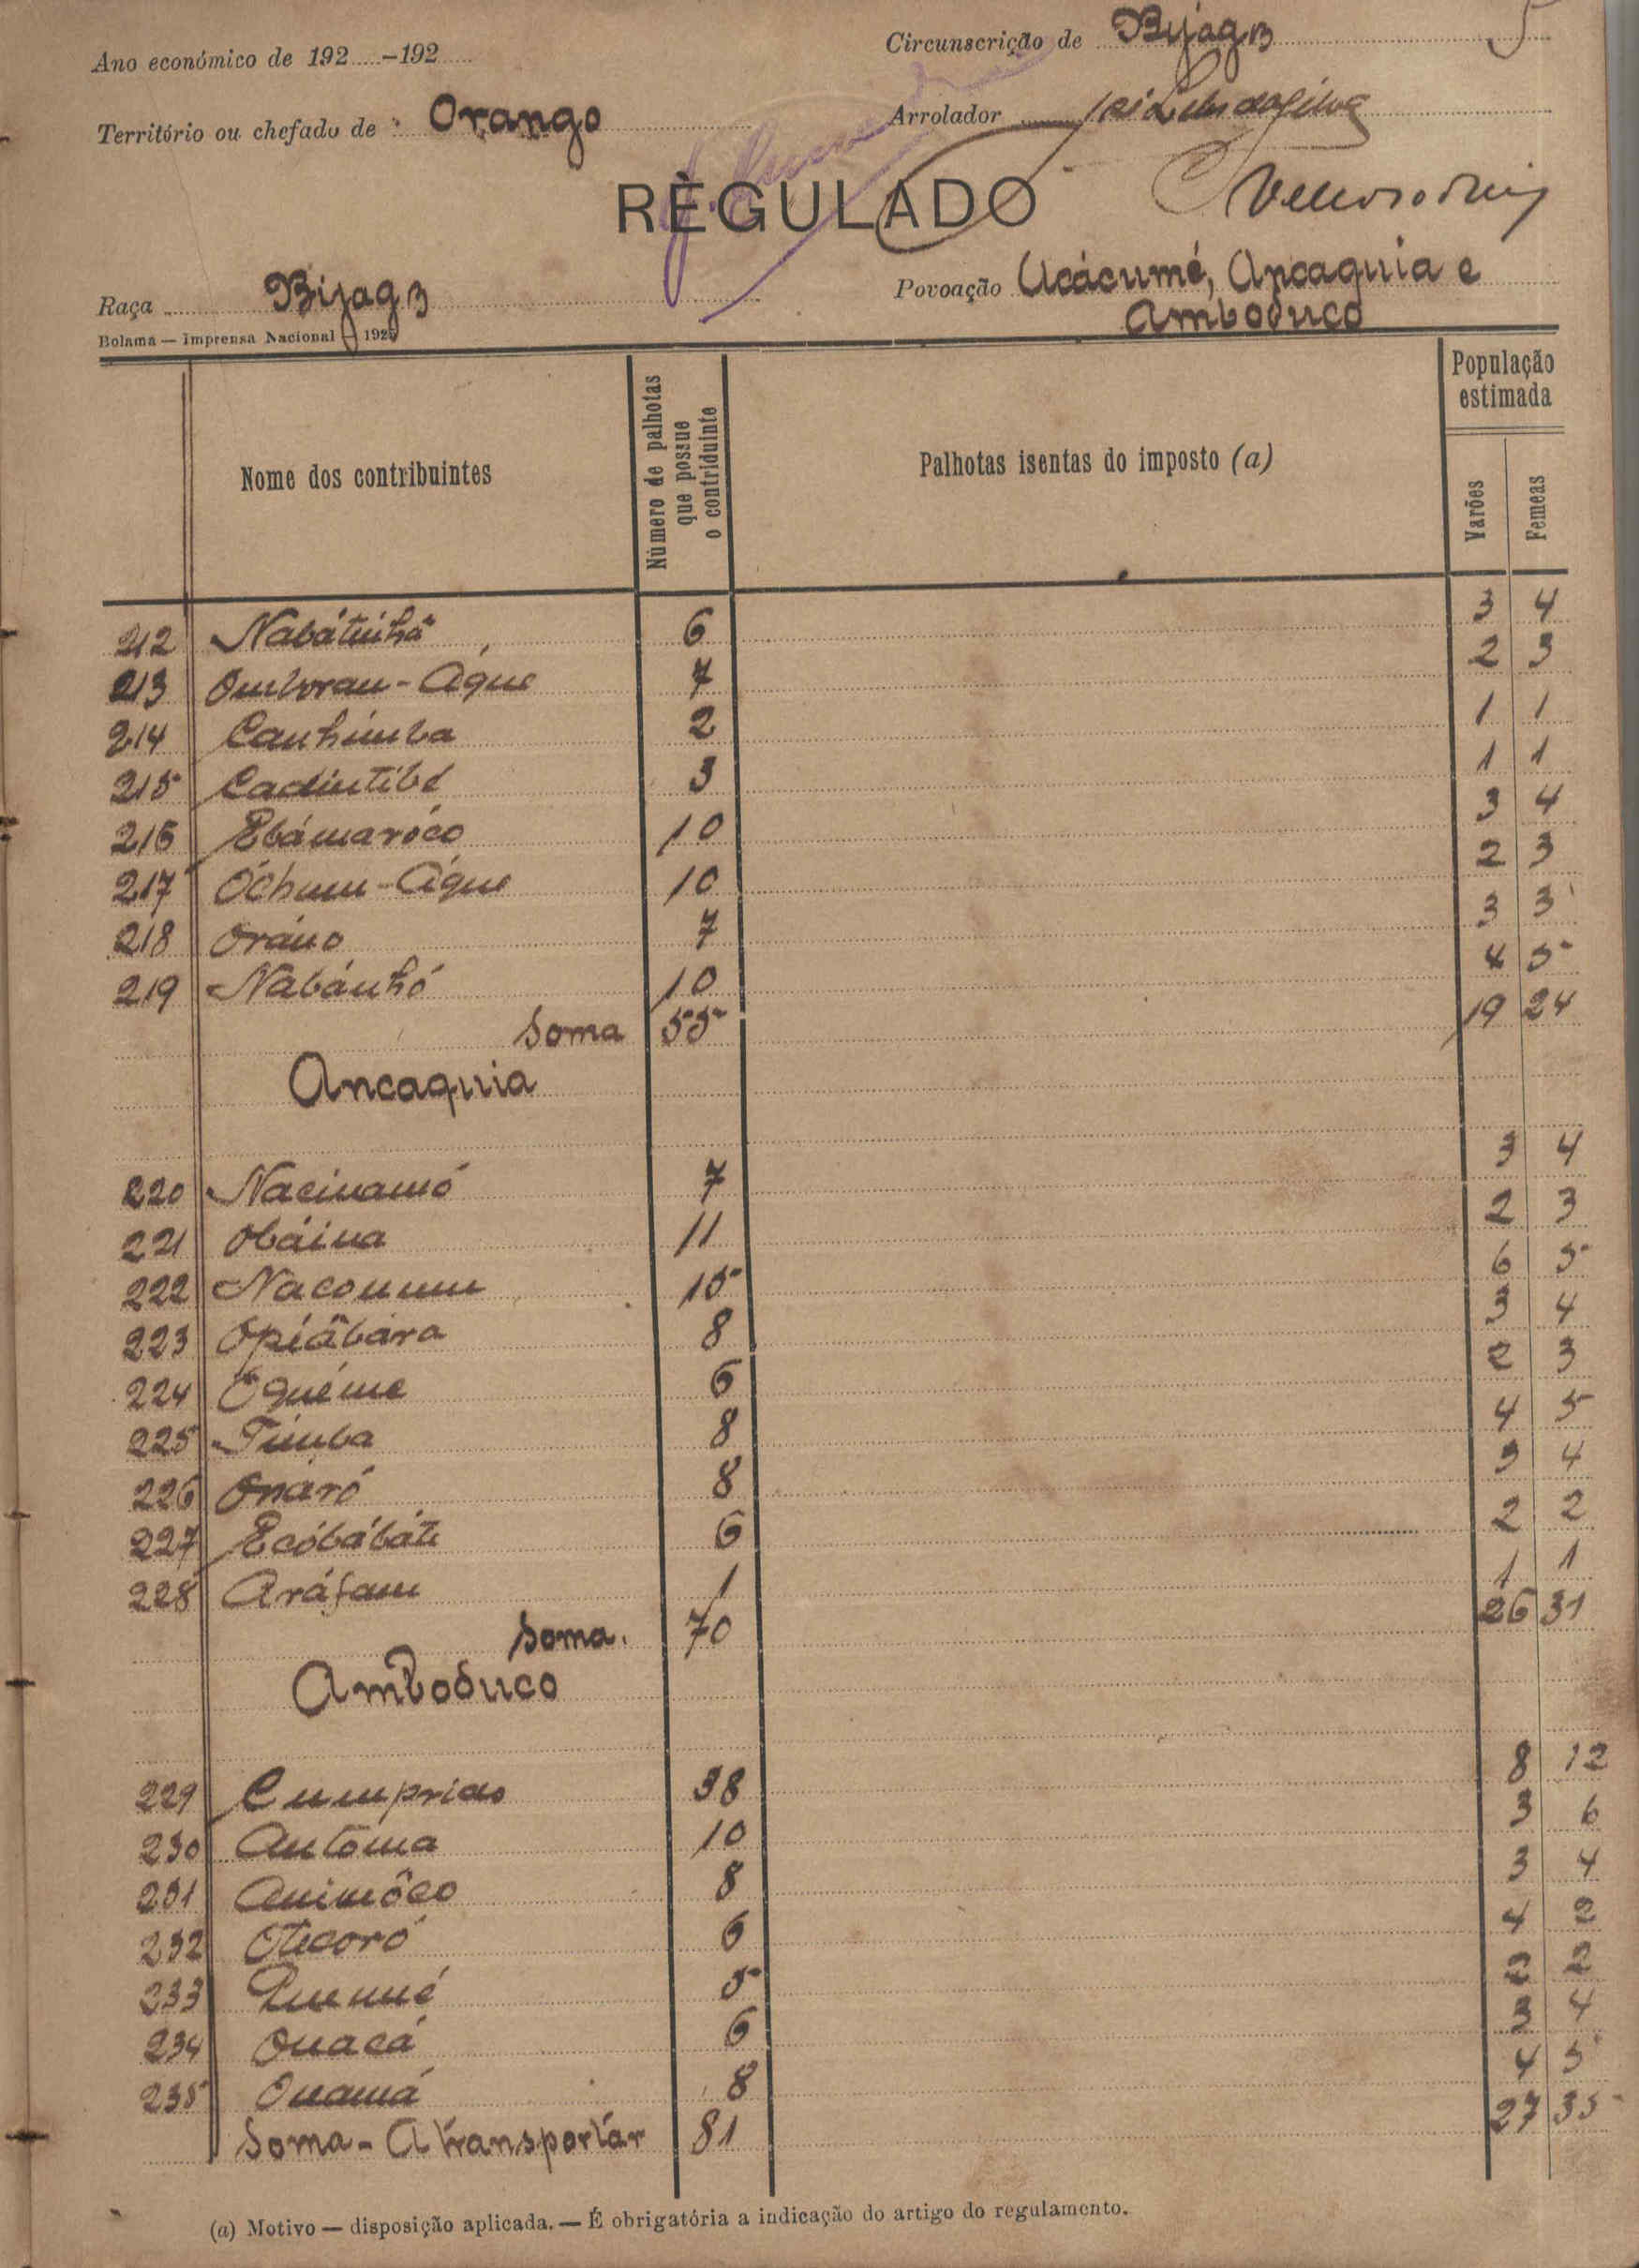 Ano económico de 192.....-192.....
Circunscrição de Bijagoz 5
Território ou chefado de Orango
Arrolador da Silva
RÈGULADO
Raça Bijagoz
Povoação Acácumé, Ancaquia e
Amboduco
Bolama — Imprensa Nacional — 1925
Nome dos contribuintes
Número de palhotas que possue o contriduinte
Palhotas isentas do imposto (a)
População estimada
Varões
Femeas
212 Nabátuihá 6 3 4
213 Omboran-Aque 7 2 3
214 Canhimba 2 1 1
215 Cadintibé 3 1 1
216 Ebámaróco 10 3 4
217 Óchum-Aque 10 2 3
218 Oráno 7 3 3
219 Nabánhó 10 4 5
Soma 55 19 24
Ancaquia
220 Nacinamó 7 3 4
221 Obáina 11 2 3
222 Naconum 15 6 5
223 Opiâbára 8 3 4
224 Oquéme 6 2 3
225 Timba 8 4 5
226 Onáró 8 3 4
227 Ecóbábáte 6 2 2
228 Aráfam 1 1 1
Soma. 70 26 31
Amboduco
229 Cumprido 38 8 12
230 Antóma 10 3 6
231 Animôco 8 3 4
232 Otecoró 6 4 2
233 5 2 2
234 Ouacá 6 3 4
235 Ouamá 8 4 5
Soma - A transportár 81 27 35
(a) Motivo — disposição aplicada. — É obrigatória a indicação do artigo do regulamento.